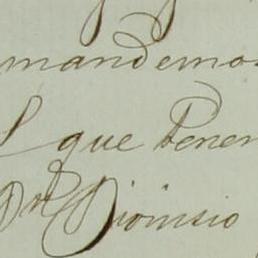 mandemos
que tener
Dn Dionisio